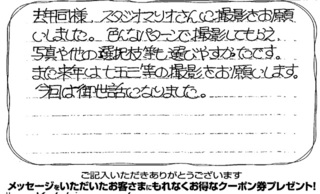 去年同様、スタジオマリオさんに撮影をお願
いしました。色んなパターンで撮影してもらえ、
写真や他の選択枝等も選びやすかたです。
また来年は七五三等の撮影をお願いします。
今回は御世話になりました。
ご記入いただきありがとうございます
メッセージをいただいたお客さまにもれなくお得なクーポン券プレゼント!